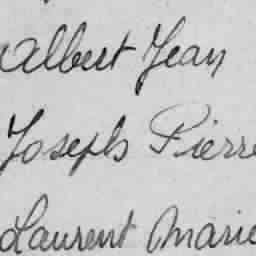 Albert Jean
Joseph Pierre
Laurent Marie